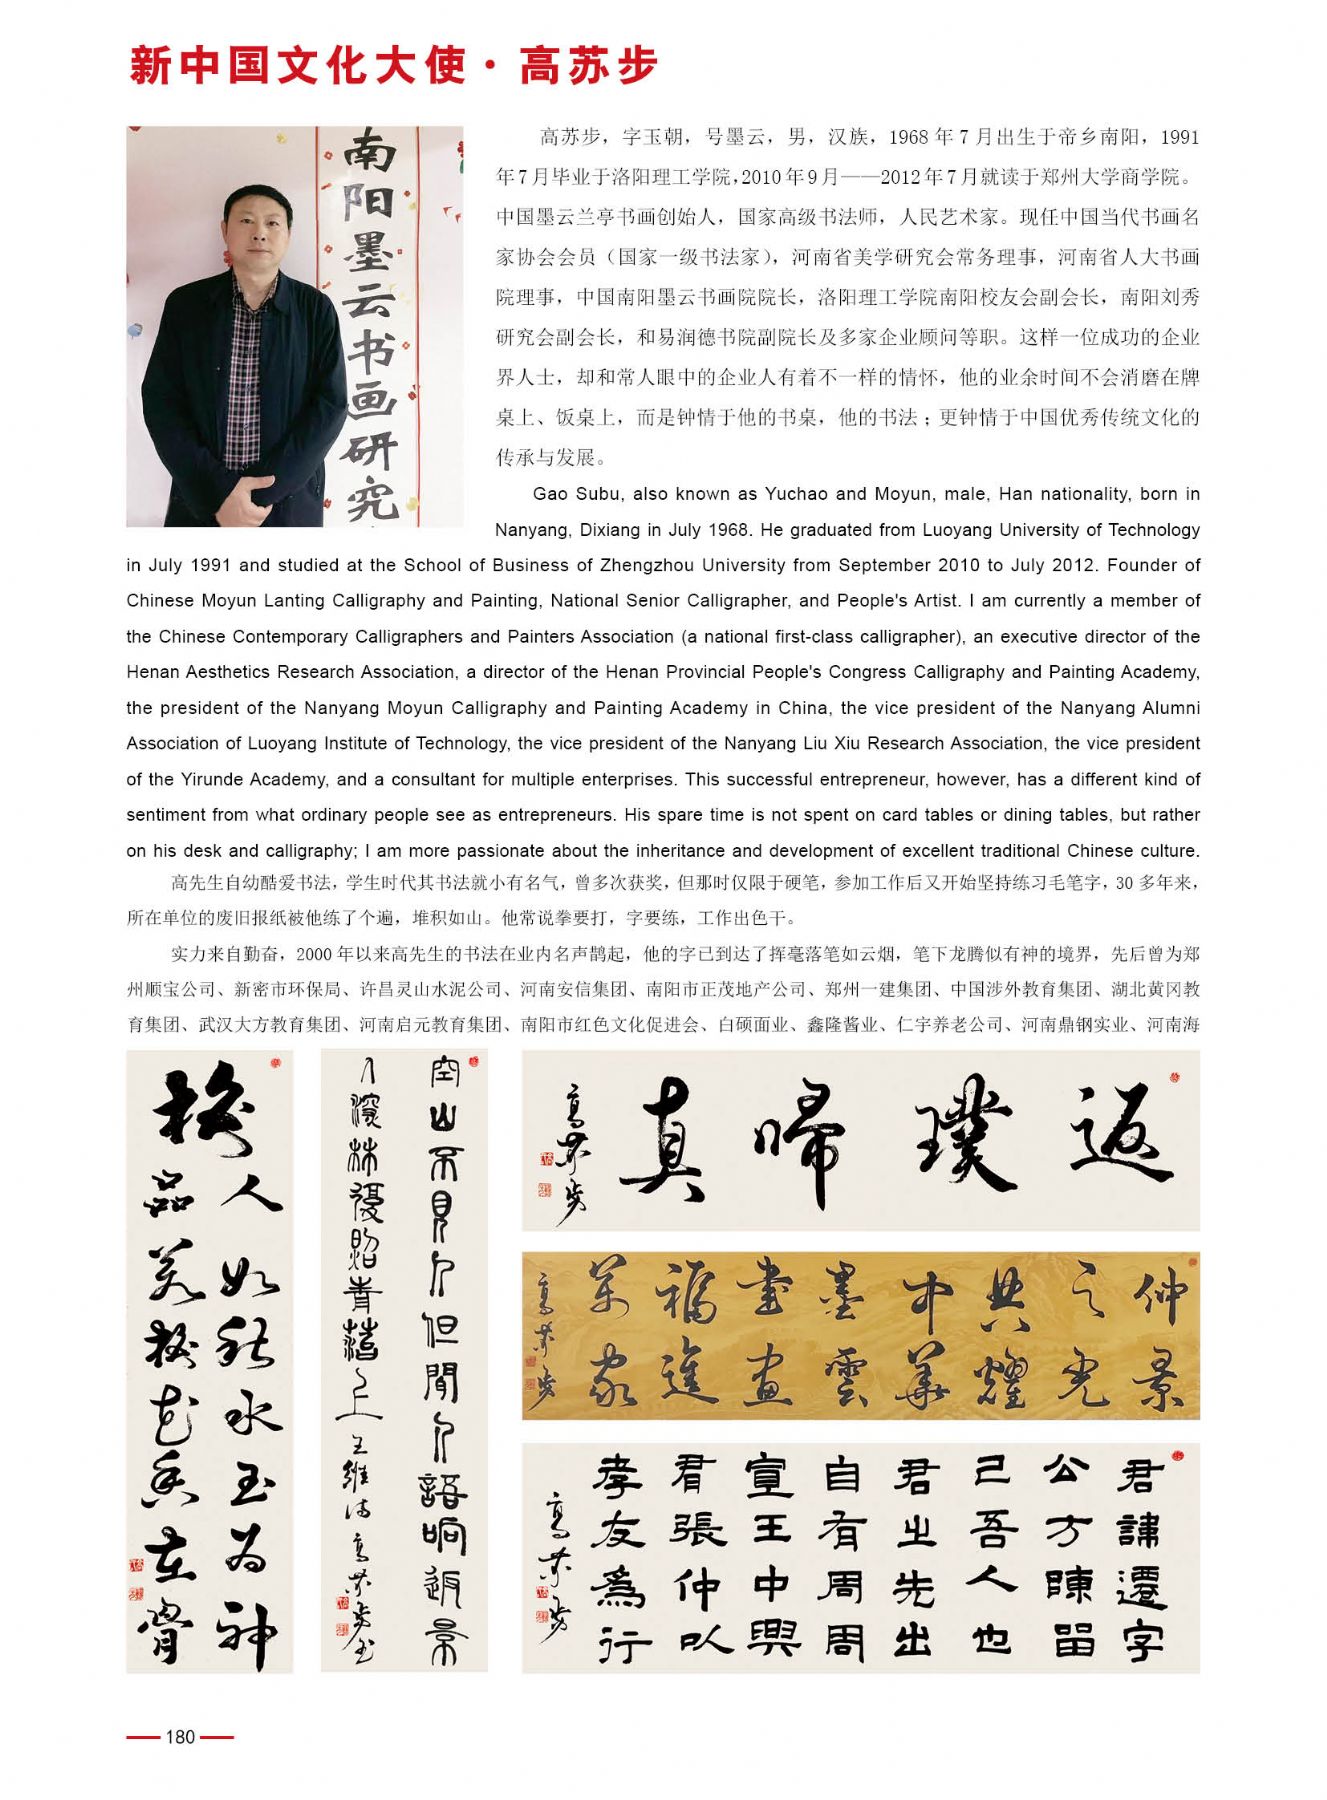 新中国文化大使·高苏步
南阳墨云书画研究
高苏步，字玉朝，号墨云，男，汉族，1968 年 7 月出生于帝乡南阳，1991
年 7 月毕业于洛阳理工学院，2010 年 9 月——2012 年 7 月就读于郑州大学商学院。
中国墨云兰亭书画创始人，国家高级书法师，人民艺术家。现任中国当代书画名
家协会会员（国家一级书法家），河南省美学研究会常务理事，河南省人大书画
院理事，中国南阳墨云书画院院长，洛阳理工学院南阳校友会副会长，南阳刘秀
研究会副会长，和易润德书院副院长及多家企业顾问等职。这样一位成功的企业
界人士，却和常人眼中的企业人有着不一样的情怀，他的业余时间不会消磨在牌
桌上、饭桌上，而是钟情于他的书桌，他的书法；更钟情于中国优秀传统文化的
传承与发展。
Gao Subu, also known as Yuchao and Moyun, male, Han nationality, born in
Nanyang, Dixiang in July 1968. He graduated from Luoyang University of Technology
in July 1991 and studied at the School of Business of Zhengzhou University from September 2010 to July 2012. Founder of
Chinese Moyun Lanting Calligraphy and Painting, National Senior Calligrapher, and People's Artist. I am currently a member of
the Chinese Contemporary Calligraphers and Painters Association (a national first-class calligrapher), an executive director of the
Henan Aesthetics Research Association, a director of the Henan Provincial People's Congress Calligraphy and Painting Academy,
the president of the Nanyang Moyun Calligraphy and Painting Academy in China, the vice president of the Nanyang Alumni
Association of Luoyang Institute of Technology, the vice president of the Nanyang Liu Xiu Research Association, the vice president
of the Yirunde Academy, and a consultant for multiple enterprises. This successful entrepreneur, however, has a different kind of
sentiment from what ordinary people see as entrepreneurs. His spare time is not spent on card tables or dining tables, but rather
on his desk and calligraphy; I am more passionate about the inheritance and development of excellent traditional Chinese culture.
高先生自幼酷爱书法，学生时代其书法就小有名气，曾多次获奖，但那时仅限于硬笔，参加工作后又开始坚持练习毛笔字，30 多年来，
所在单位的废旧报纸被他练了个遍，堆积如山。他常说拳要打，字要练，工作出色干。
实力来自勤奋，2000 年以来高先生的书法在业内名声鹊起，他的字已到达了挥毫落笔如云烟，笔下龙腾似有神的境界，先后曾为郑
州顺宝公司、新密市环保局、许昌灵山水泥公司、河南安信集团、南阳市正茂地产公司、郑州一建集团、中国涉外教育集团、湖北黄冈教
育集团、武汉大方教育集团、河南启元教育集团、南阳市红色文化促进会、白硕面业、鑫隆酱业、仁宇养老公司、河南鼎钢实业、河南海
人如秋水玉为神
品若梅花香在骨
空山不見人但聞人語响返景
入深林復照青苔上
王維诗 高苏步书
返璞歸真
高苏步
仲景之光
典耀中華
墨雲書画
福進萬家
高苏步
君諱遷字
公方陳留
己吾人也
君之先出
自有周周
宣王中興
有張仲以
孝友為行
高苏步
180